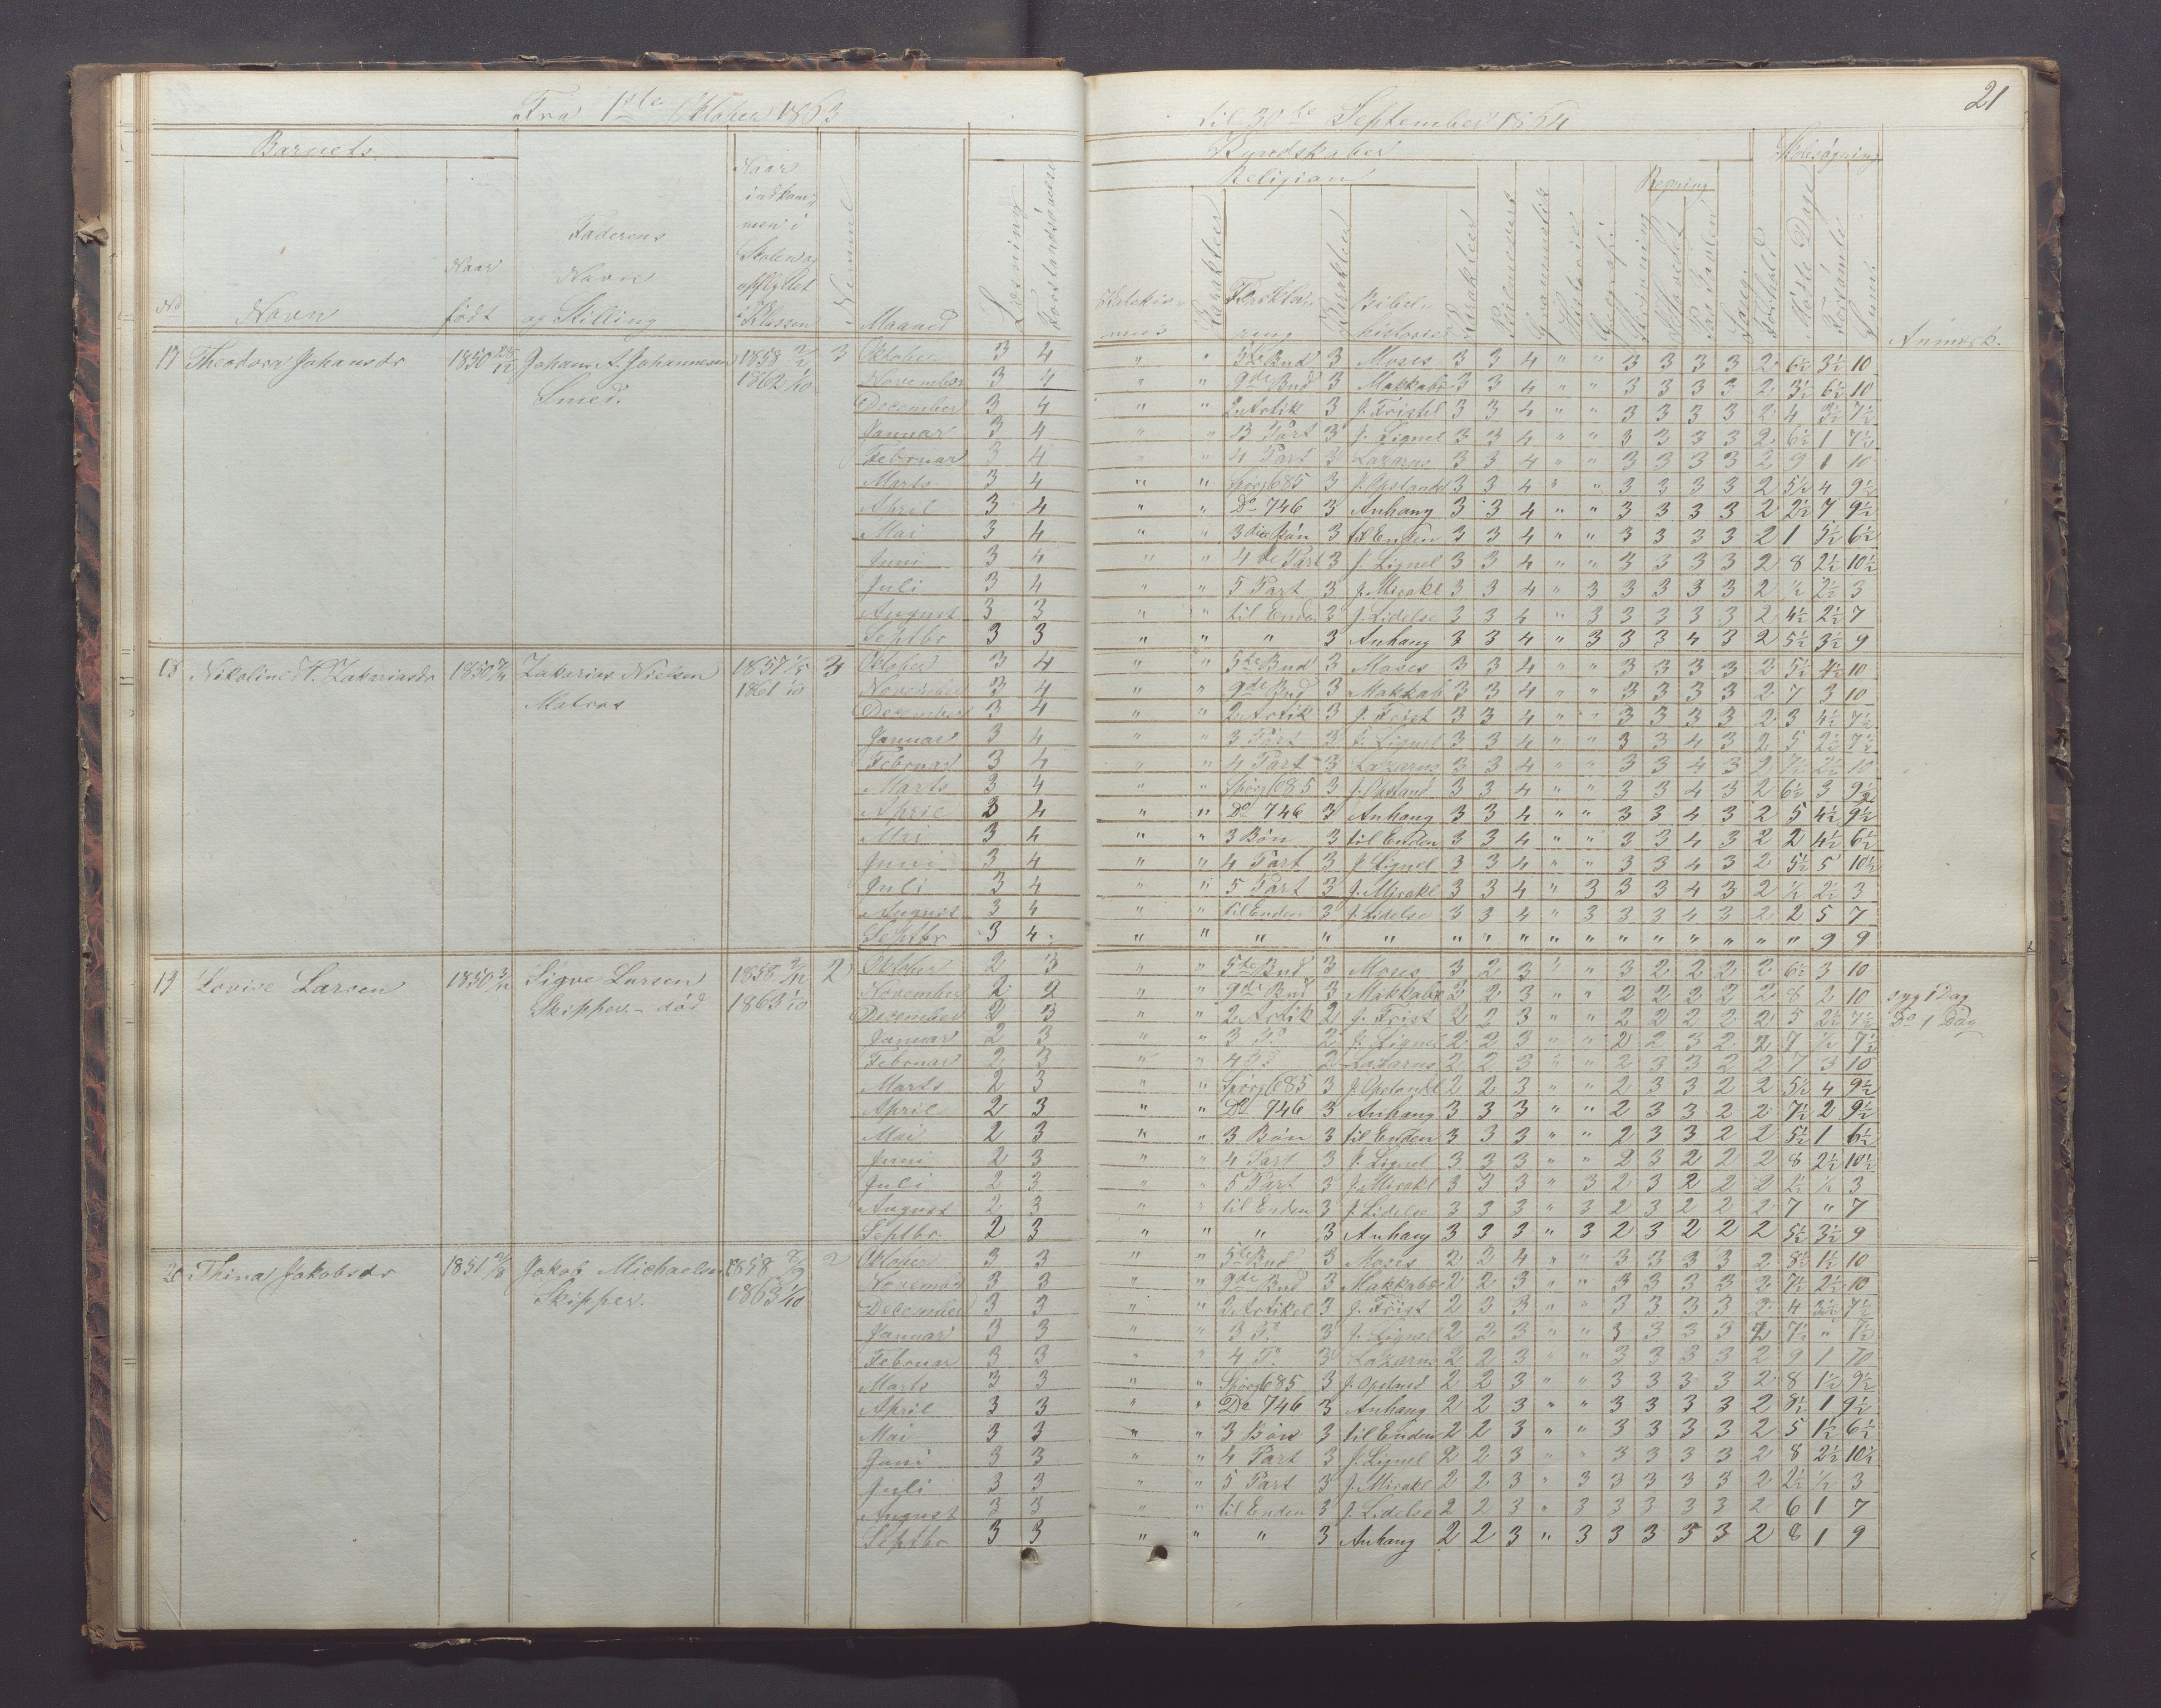 21
Fra 1ste Oktober 1863 til 30te September 1864
Barnets Kundskaber Skolesøgning
Religion Regning
No Navn Naar født Faderens Navn og Stilling Naar indkommen i Skolen og opflyttet i Klassen Nummer Maaned Læsning Forstandsøvelse Karakter Forklaring Karakter Bibelhistorie Karakter Historie Geografi Skrivning Sang Forhold Mødte Dage Forsømte Sum Anmærk.
17 Theodora Johansdr 1850 Johan A. Johannesen 1858 3 Oktober 3 4 " " 5te Bud 3 Moses 3 3 4 " " 3 3 3 3 2 6½ 3½ 10
Smed. 1862 1/10 November 3 4 " " 9de Bud 3 Makkab 3 3 4 " " 3 3 3 3 2 3½ 6½ 10
December 3 4 " " 2 Artik 3 J. Fristel 3 3 4 " " 3 3 3 3 2 4 3½ 7½
Januar 3 4 " " 3 Part 3 J. Lignel 3 3 4 " " 3 3 3 3 2 6½ 1 7½
Februar 3 4 " " 4 Part 3 Lazarus 3 3 4 " " 3 3 3 3 2 9 1 10
Marts 3 4 " " Spørg 685 3 J. Opstandel 3 3 4 " " 3 3 3 3 2 5½ 4 9½
April 3 4 " " Do 746 3 Anhang 3 3 4 " " 3 3 3 3 2 2½ 7 9½
Mai 3 4 " " 3die Bøn 3 til Enden 3 3 4 " " 3 3 3 3 2 1 5½ 6½
Juni 3 4 " " 4de Part 3 J. Lignel 3 3 4 " " 3 3 3 3 2 8 2½ 10½
Juli 3 4 " " 5 Part 3 J. Mirakl 3 3 4 " 3 3 3 3 3 2 ½ 2½ 3
August 3 3 " " til Enden 3 J. Lidelse 3 3 4 " 3 3 3 3 3 2 4½ 2½ 7
Septbr 3 3 " " " 3 Anhang 3 3 4 " 3 3 3 4 3 2 5½ 3½ 9
18 Nikoline H. Zakariasdr 1850 Zakarias Nielsen 1857 3 Oktober 3 4 " " 5te Bud 3 Moses 3 3 4 " " 3 3 3 3 2 5½ 4½ 10
Matros 1861 1/10 November 3 4 " " 9de Bud 3 Makkab 3 3 4 " " 3 3 3 3 2 7 3 10
December 3 4 " " 2 Artik 3 J. Frist 3 3 4 " " 3 3 3 3 2 3 4½ 7½
Januar 3 4 " " 3 Part 3 J. Lignel 3 3 4 " " 3 3 4 3 2 5 2½ 7½
Februar 3 4 " " 4 Part 3 Lazarus 3 3 4 " " 3 3 4 3 2 7½ 2½ 10
Marts 3 4 " " Spørg 685 3 J. Opstand 3 3 4 " " 3 3 4 3 2 6½ 3 9½
April 3 4 " " Do 746 3 Anhang 3 3 4 " " 3 3 4 3 2 5 4½ 9½
Mai 3 4 " " 3 Bøn 3 til Enden 3 3 4 " " 3 3 4 3 2 2 4½ 6½
Juni 3 4 " " 4 Part 3 J. Lignel 3 3 4 " " 3 3 4 3 2 5½ 5 10½
Juli 3 4 " " 5 Part 3 J. Mirakl 3 3 4 " 3 3 3 4 3 2 ½ 2½ 3
August 3 4 " " til Enden 3 J. Lidelse 3 3 4 " 3 3 3 4 3 2 2 5 7
Septbr 3 4 " " " " " " " " " " " " " " " " 9 9
19 Lovise Larsen 1850 Sigve Larsen 1858 2 Oktober 2 3 " " 5te Bud 3 Moses 3 2 3 " " 3 2 2 2 2 6½ 3 10
Skipper - død 1863 1/10 November 2 2 " " 9de Bud 3 Makkabæ 2 2 3 " " 2 2 2 2 2 8 2 10 syg 1 Dag
December 2 3 " " 2 Artik 2 J. Frist 2 2 3 " " 2 2 2 2 2 5 2½ 7½ Do 1 Dag
Januar 2 3 " " 3 P. 2 J. Lignel 2 2 3 " " 2 2 3 2 2 7 ½ 7½
Februar 2 3 " " 4 P. 2 Lazarus 2 2 3 " " 2 3 3 2 2 7 3 10
Marts 2 3 " " Spørg 685 3 J. Opstandel 2 2 3 " " 2 3 3 2 2 5½ 4 9½
April 2 3 " " Do 746 3 Anhang 3 3 3 " " 2 3 3 2 2 7½ 2 9½
Mai 2 3 " " 3 Bøn 3 til Enden 3 3 3 " " 2 3 3 2 2 5½ 1 6½
Juni 2 3 " " 4 Part 3 J. Lignel 3 3 3 " " 2 3 2 2 2 8 2½ 10½
Juli 2 3 " " 5 Part 3 J. Mirakl 3 3 3 " 3 2 3 2 2 2 2½ ½ 3
August 2 3 " " til Enden 3 J. Lidelse 3 3 3 " 3 2 3 2 2 2 7 " 7
Septbr. 2 3 " " " 3 Anhang 3 3 3 " 3 2 3 2 2 2 5½ 3½ 9
20 Thina Jakobsdr 1851 Jakob Michaelsen 1858 2 Oktober 3 3 " " 5te Bud 3 Moses 2 2 4 " " 3 3 3 3 2 8½ 1½ 10
Skipper. 1863 1/10 November 3 3 " " 9de Bud 3 Makkabæ 2 2 3 " " 3 3 3 3 2 7½ 2½ 10
December 3 3 " " 2 Artikel 3 J. Frist 2 3 3 " " 3 3 3 3 2 4 3½ 7½
Januar 3 3 " " 3 P. 3 J. Lignel 2 2 3 " " 3 3 3 3 2 7½ " 7½
Februar 3 3 " " 4 P. 3 Lazarus 2 2 3 " " 3 3 3 3 2 9 1 10
Marts 3 3 " " Spørg 685 3 J. Opstand 2 2 3 " " 3 3 3 3 2 8 1½ 9½
April 3 3 " " Do 746 3 Anhang 2 2 3 " " 3 3 3 3 2 8½ 1 9½
Mai 3 3 " " 3 Bøn 3 til Enden 2 2 3 " " 3 3 3 3 2 5 1½ 6½
Juni 3 3 " " 4 Part 3 J. Lignel 2 2 3 " " 3 3 3 3 2 8 2½ 10½
Juli 3 3 " " 5 Part 3 J. Mirakl 2 2 3 " 3 3 3 3 3 2 2½ ½ 3
August 3 3 " " til Enden 3 J. Lidelse 2 2 3 " 3 3 3 3 3 2 6 1 7
Septbr 3 3 " " " 3 Anhang 2 2 3 " 3 3 3 3 3 2 8 1 9